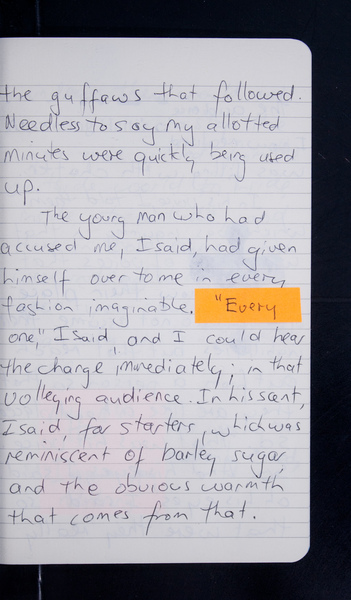 the guffaws that followed.
Needless to say my allotted
minutes were quickly being used
up.
The young man who had
accused me, I said, had given
himself over to me in every
fashion imaginable. "Every
one," I said, and I could hear
the charge immediately; in that
volleying audience. In his scent,
I said, for starters, which was
reminiscent of barley sugar,
and the obvious warmth
that comes from that.